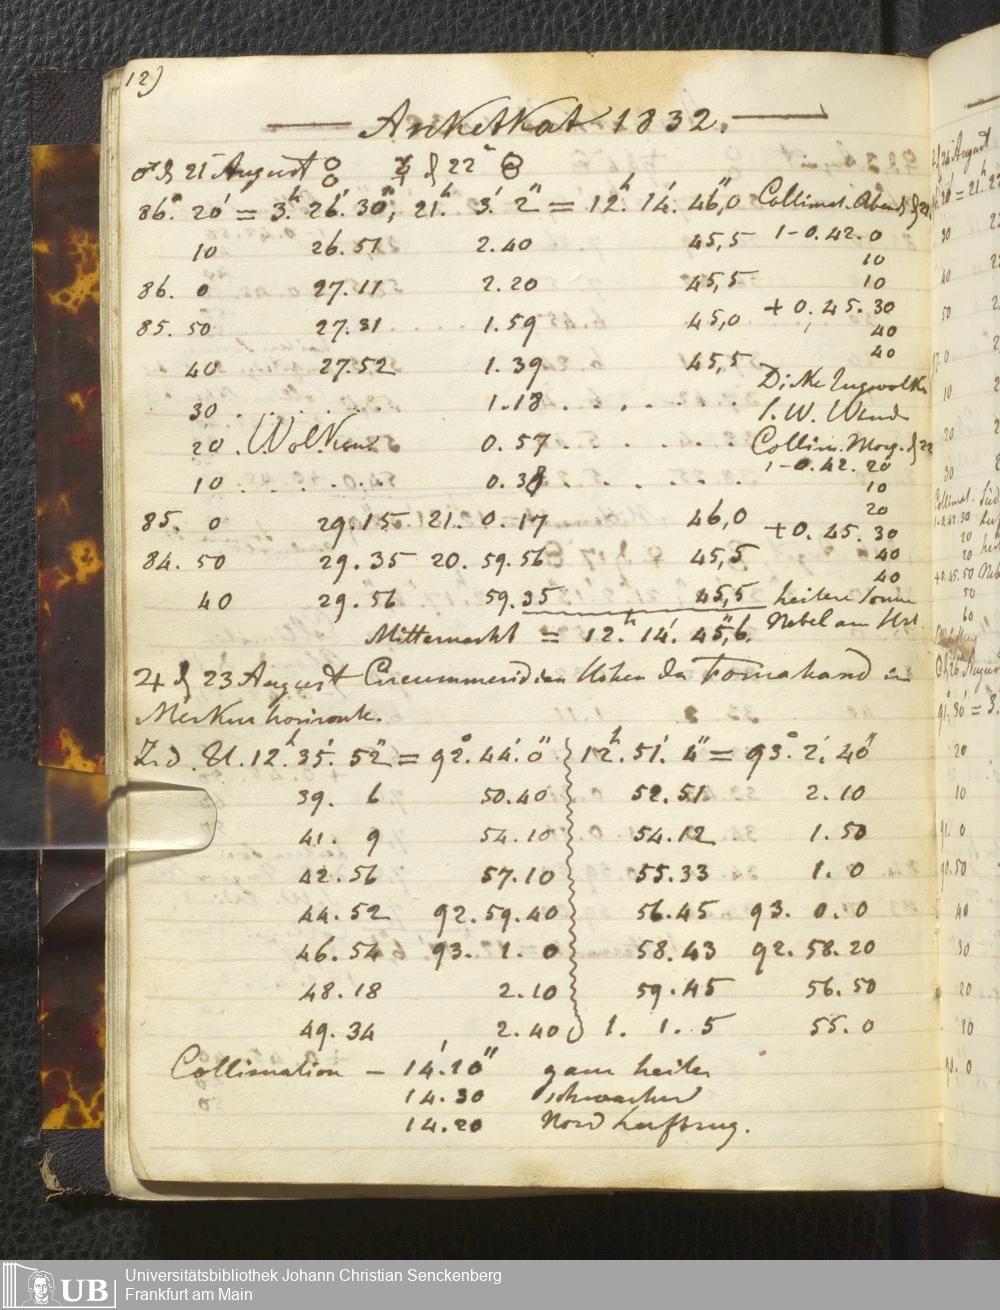 12)
Arketkat 1832.
♂ d 21 August ☿ d 22 "
86.° 20' = 3.h 26.' 30", 21.h 3.' 2" = 12.h 14.' 46",0 Collimat. Abend d 21
10 26.51 2.40 45,5 1-0.42.0
10
86. 0 27.11 2.20 45,5 10
85. 50 27.31 1.59 45,0 + 0.45.30
40
40 27.52 1.39 45,5 40
30 . . . . . 1.18 . . . . Dicke
S.W. Wind
20 . Wolken 0.57 . . . . . Collim. Morg. d 22
1-0.42.20
10 . . . . . . 0.38 . . . . . 10
20
85. 0 29.15 21. 0.17 46,0 + 0.45.30
84. 50 29.35 20. 59.56 45,5 40
40
40 29.56 59.35 45,5 heitere Sonne
Mitternacht = 12.h 14.' 45",6. Nebel am Hor.
♃ d 23 August Circummeridian Höhen des Fomahand im
Merkurhorizonte.
Z.d. U. 12.h 35.' 52" = 92.° 44.' 0" 12.h 51.' 4" = 93.° 2.' 40"
39. 6 50.40 52.51 2.10
41. 9 54.10 54.12 1.50
42.56 57.10 55.33 1. 0
44.52 92.59.40 56.45 93. 0.0
46.54 93. 1. 0 58.43 92.58.20
48.18 2.10 59.45 56.50
49.34 2.40 1. 1. 5 55.0
Collimation – 14.'20" ganz heiter
14.30 schwacher
14.20 Nord Luftzug.
UB
Universitätsbibliothek Johann Christian Senckenberg
Frankfurt am Main